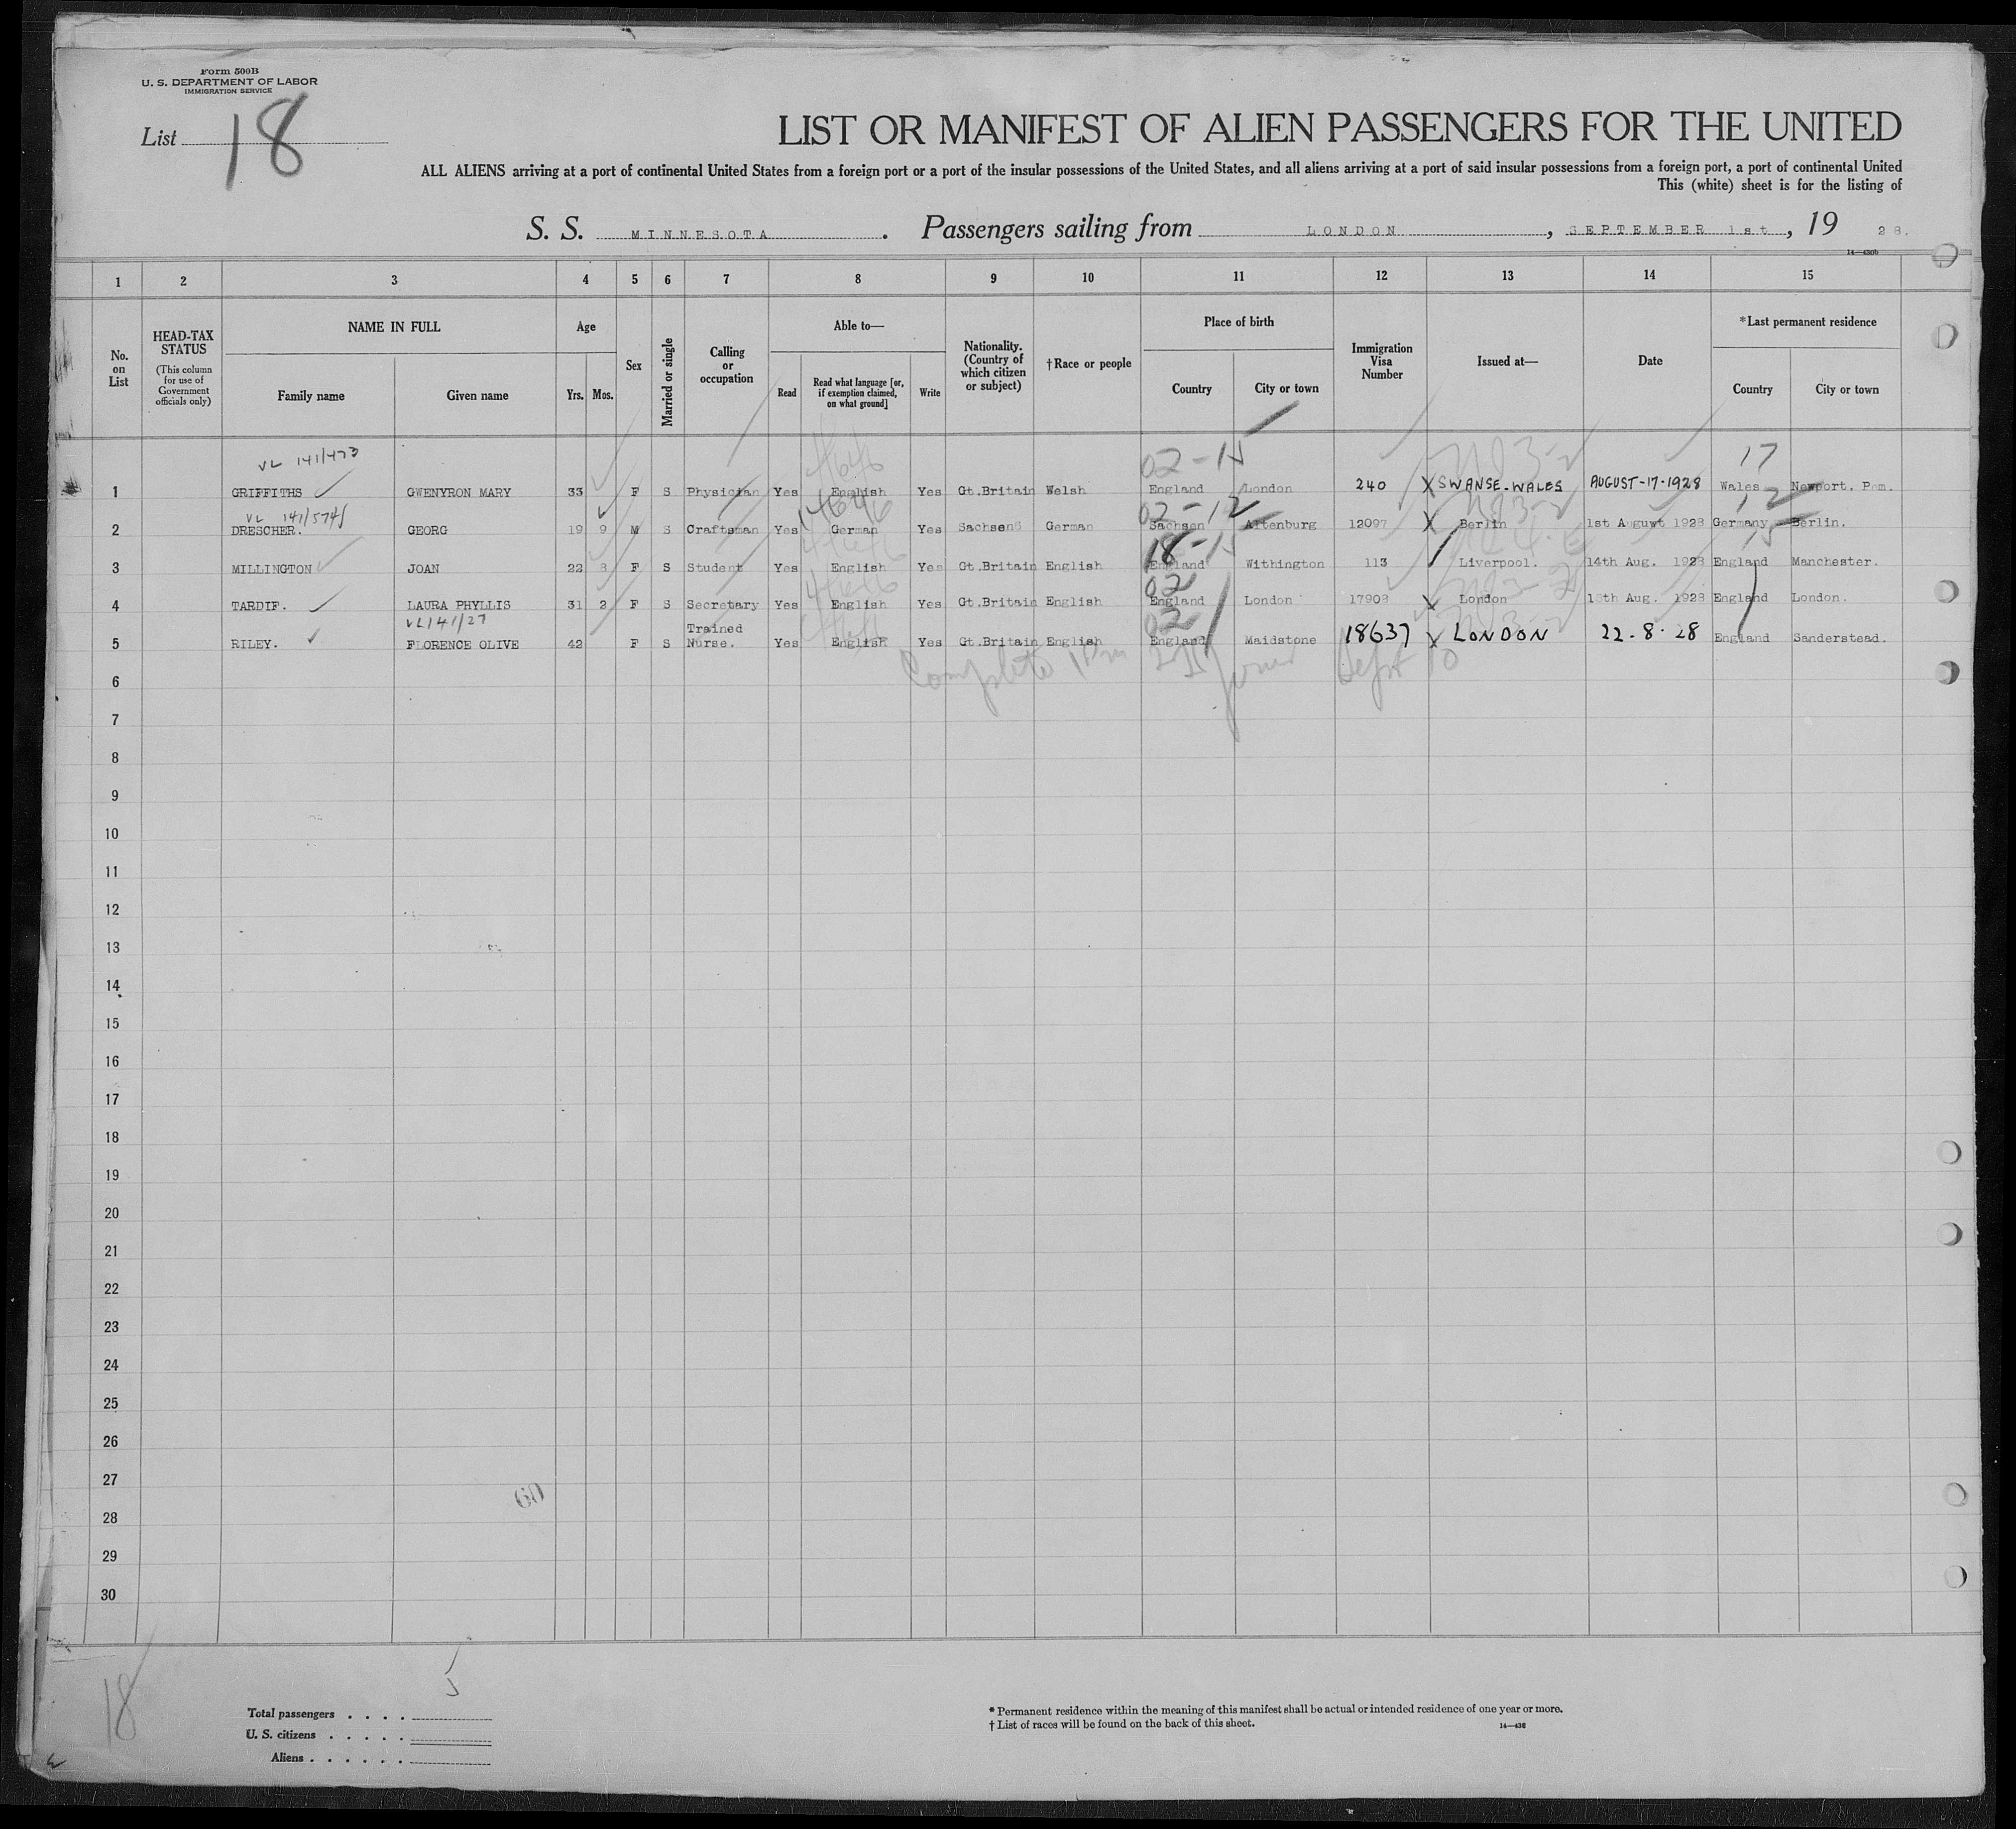 Form 500B
U. S. DEPARTMENT OF LABOR
IMMIGRATION SERVICE
List 18
LIST OR MANIFEST OF ALIEN PASSENGERS FOR THE UNITED
ALL ALIENS arriving at a port of continental United States from a foreign port or a port of the insular possessions of the United States, and all aliens arriving at a port of said insular possessions from a foreign port, a port of continental United
This (white) sheet is for the listing of
S. S. MINNESOTA. Passengers sailing from LONDON, SEPTEMBER 1st, 19 28.
14—430b
1 2 3 4 5 6 7 8 9 10 11 12 13 14 15
No. on List
HEAD-TAX STATUS
(This column for use of Government officials only)
NAME IN FULL
Family name Given name
Age
Yrs. Mos.
Sex
Married or single
Calling or occupation
Able to—
Read
Read what language [or, if exemption claimed, on what ground]
Write
Nationality. (Country of which citizen or subject)
†Race or people
Place of birth
Country City or town
Immigration Visa Number
Issued at—
Date
*Last permanent residence
Country City or town
VL 141/473
02-15 17
1 GRIFFITHS GWENYRON MARY 33 F S Physician Yes English Yes Gt.Britain Welsh England London 240 X SWANSE-WALES AUGUST-17-1928 Wales Newport. Pem.
VL 141/574
02-12 12
2 DRESCHER. GEORG 19 9 M S Craftsman Yes German Yes Sachsens German Sachsen Altenburg 12097 X Berlin 1st Auguwt 1928 Germany Berlin.
18-15 15
3 MILLINGTON JOAN 22 8 F S Student Yes English Yes Gt.Britain English England Withington 113 Liverpool. 14th Aug. 1928 England Manchester.
02
4 TARDIF. LAURA PHYLLIS 31 2 F S Secretary Yes English Yes Gt.Britain English England London 17908 X London 15th Aug. 1928 England London.
VL 141/27
02
5 RILEY. FLORENCE OLIVE 42 F S Trained Nurse. Yes English Yes Gt.Britain English England Maidstone 18637 X LONDON 22.8.28 England Sanderstead.
Complete Sept 10
6
7
8
9
10
11
12
13
14
15
16
17
18
19
20
21
22
23
24
25
26
27
60
28
29
30
5
18
Total passengers
U. S. citizens
Aliens
* Permanent residence within the meaning of this manifest shall be actual or intended residence of one year or more.
† List of races will be found on the back of this sheet.
14—430